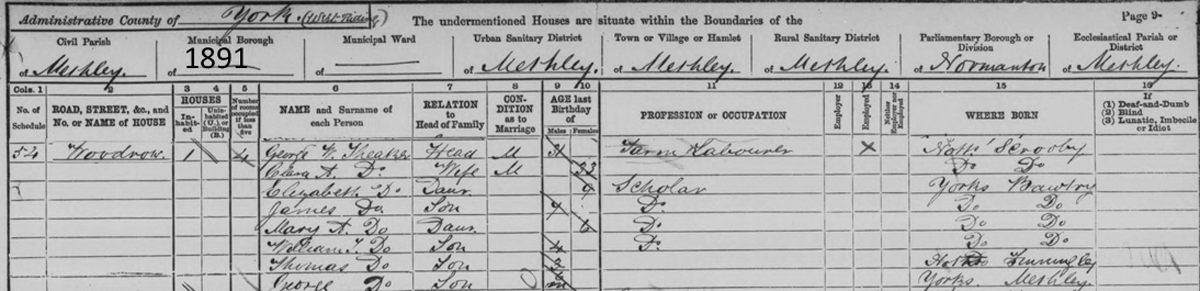 Administrative County of York. (West Riding) The undermentioned Houses are situate within the Boundaries of the Page 9
Civil Parish Municipal Borough Municipal Ward Urban Sanitary District Town or Village or Hamlet Rural Sanitary District Parliamentary Borough or Division Ecclesiastical Parish or District
of Methley. of 1891 of of Methley. of Methley. of Methley. of Normanton of Methley.
Cols. 1 2 3 4 5 6 7 8 9 10 11 12 13 14 15 16
No. of Schedule ROAD, STREET, &c., and No. or NAME of HOUSE HOUSES Inhabited Uninhabited (U.) or Building (B.) Number of rooms occupied if less than five NAME and Surname of each Person RELATION to Head of Family CONDITION as to Marriage AGE last Birthday of Males Females PROFESSION or OCCUPATION Employer Employed Neither Employer nor Employed WHERE BORN If (1) Deaf-and-Dumb (2) Blind (3) Lunatic, Imbecile or Idiot
54 Woodrow 1 4 George W. Theaker Head M Farm Labourer X Notts Scrooby
Clara A. Do Wife M 33 Do Do
Elizabeth Do Daur. 9 Scholar Yorks Bawtry
James Do Son 7 Do Do Do
Mary A. Do Daur. 6 Do Do Do
William T. Do Son 4 Do Do Do
Thomas Do Son Notts Finningley
George Do Son Yorks. Methley